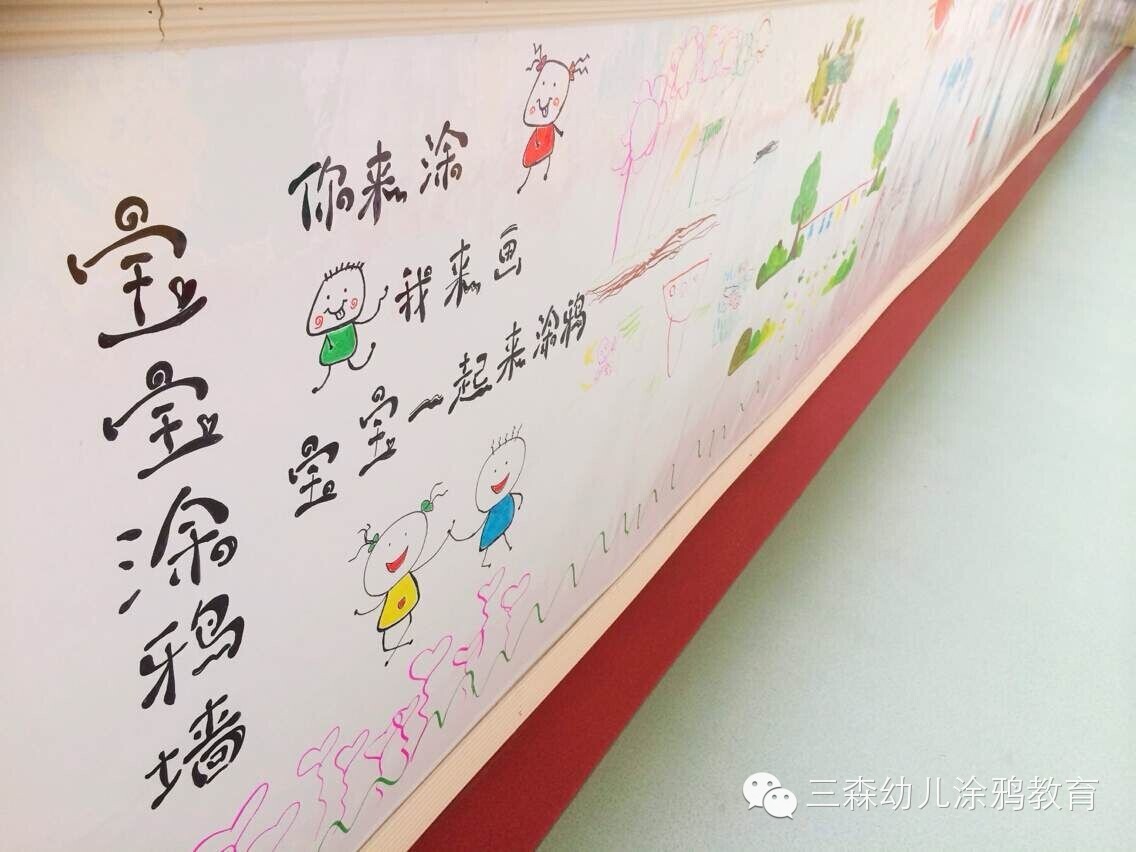 宝宝涂鸦墙
你来涂
我来画
宝宝一起来涂鸦
三森幼儿涂鸦教育